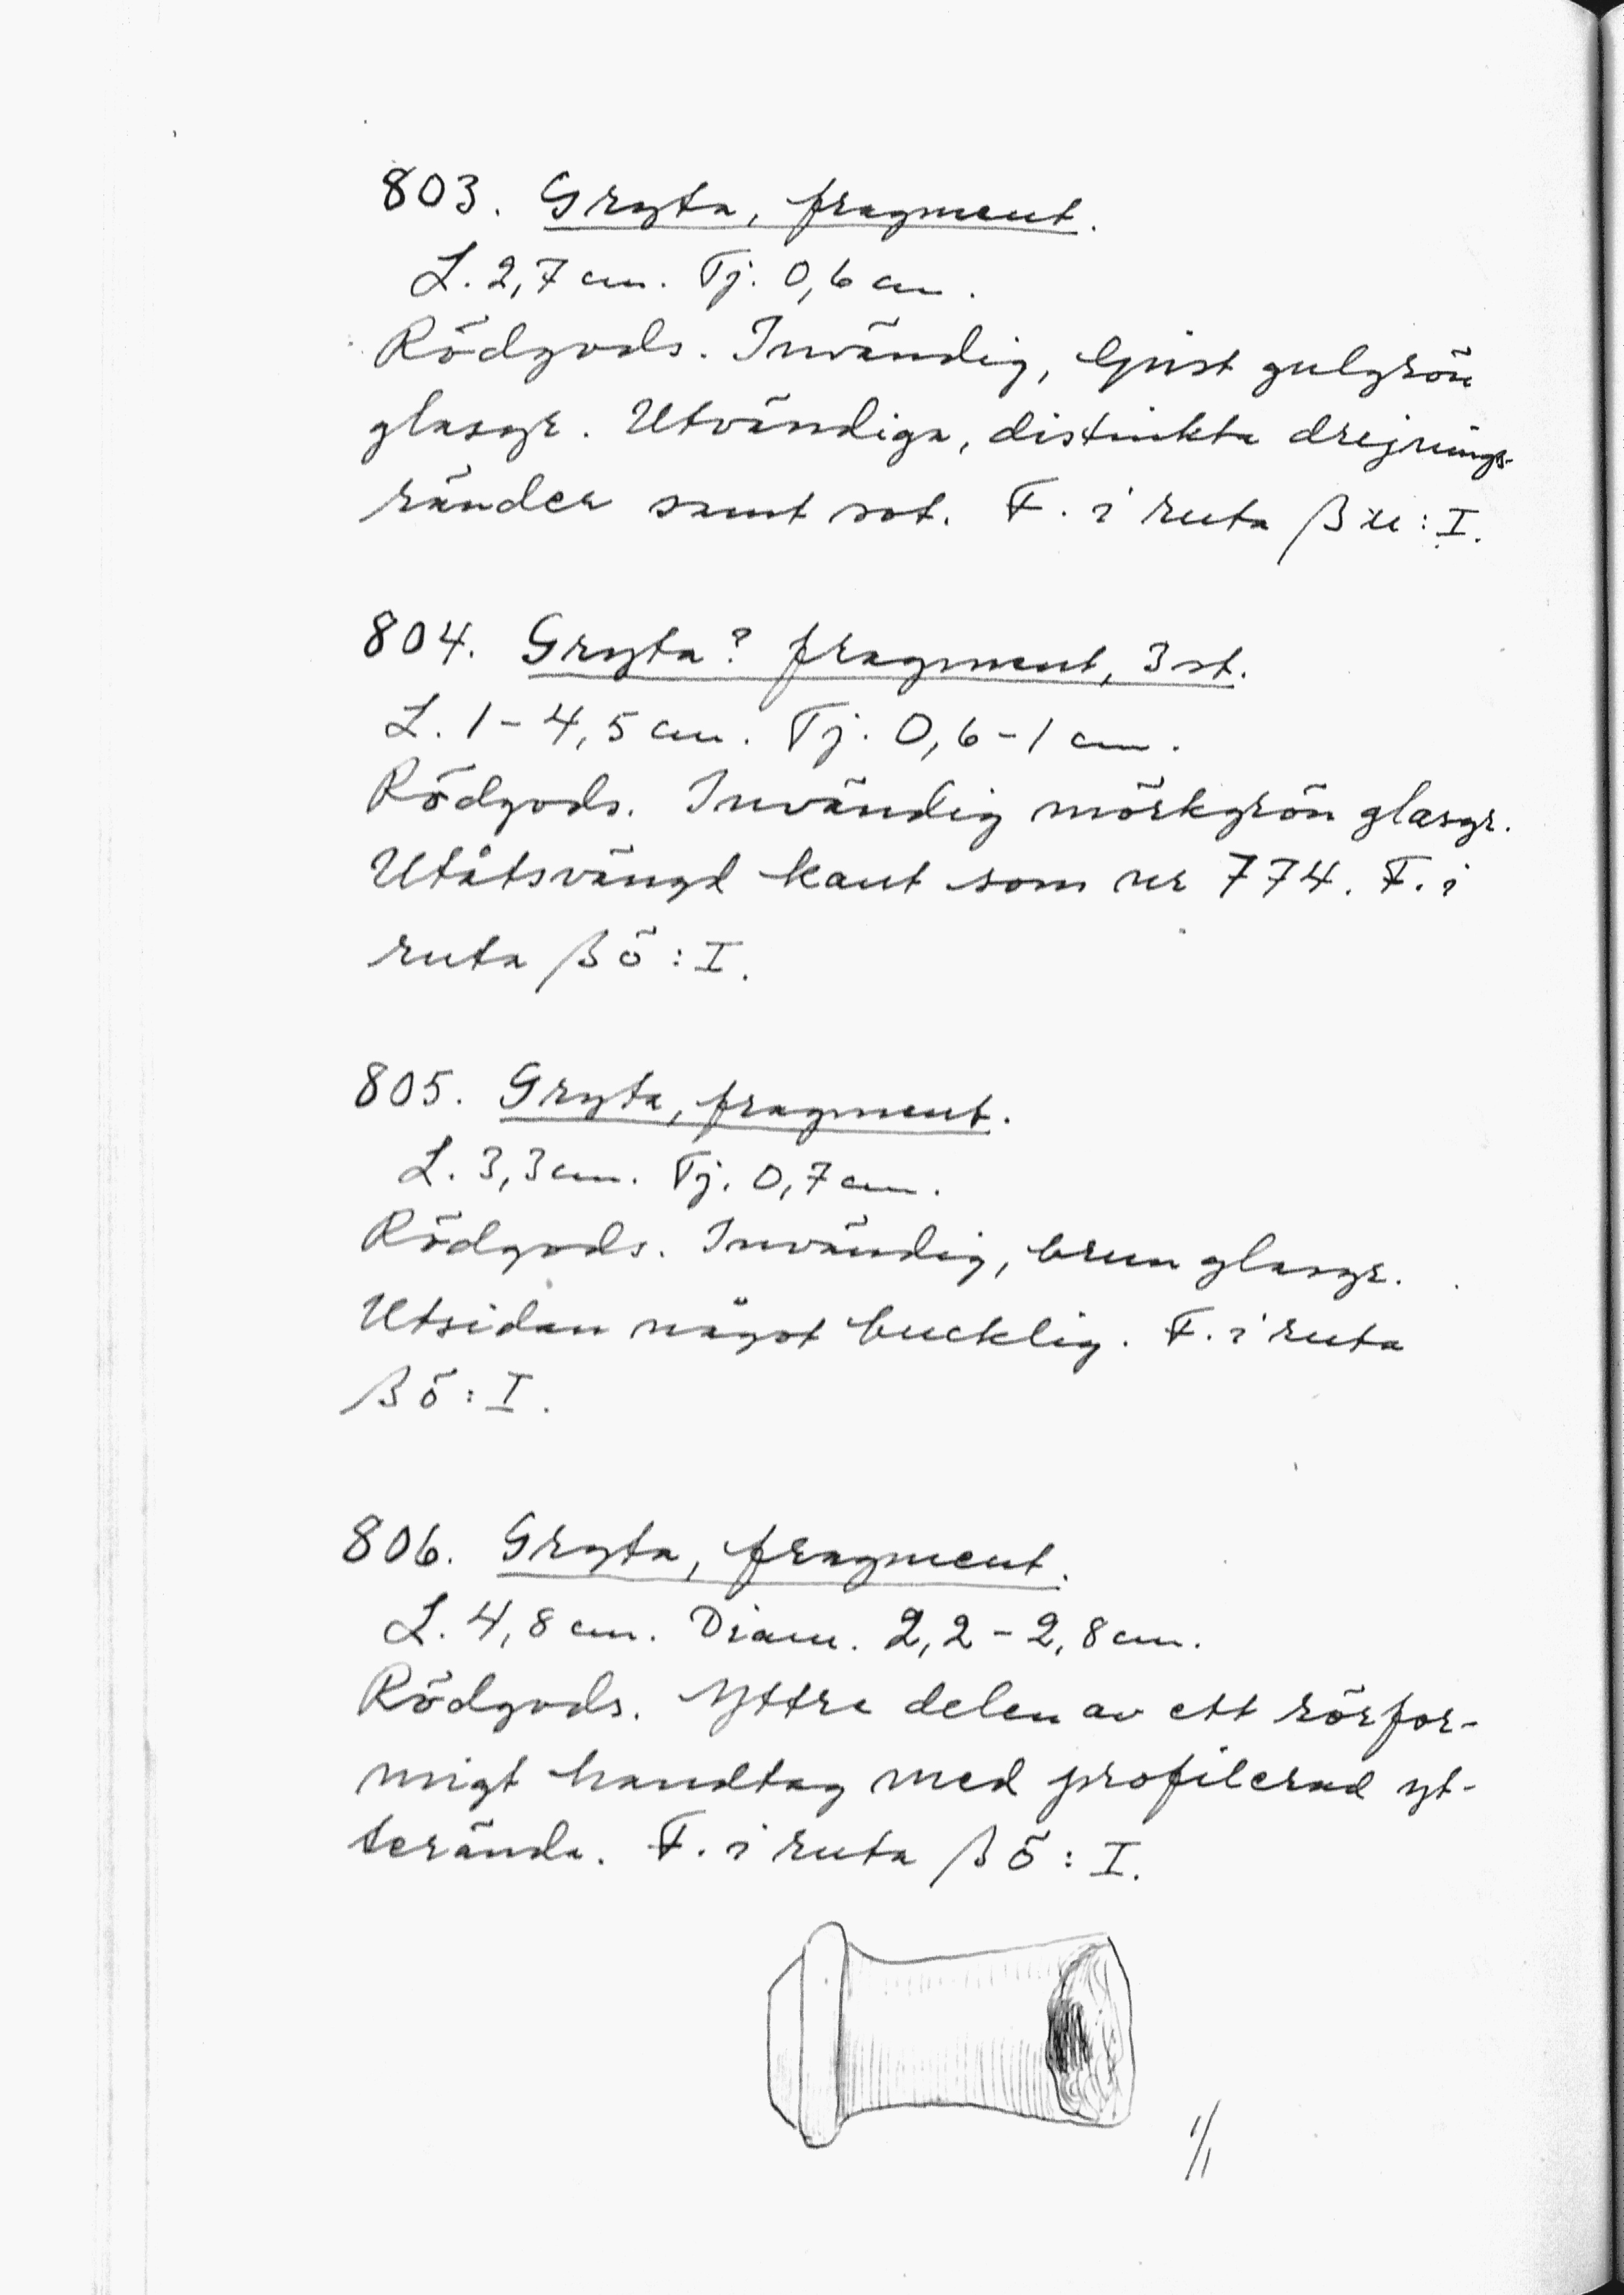 803. Gryta, fragment.
L. 2,7 cm. Tj. 0,6 cm.
Rödgods. Invändig, ljust gulgrön
glasyr. Utvändiga, distinkta drejnings-
ränder samt sot. F. i ruta β :I.
804. Gryta? fragment, 3 st.
L. 1-4,5 cm. Tj. 0,6-1 cm.
Rödgods. Invändig mörkgrön glasyr.
Utåtsvängd kant som nr 774. F. i
ruta β ö : I.
805. Gryta, fragment.
L. 3,3 cm. Tj. 0,7 cm.
Rödgods. Invändig, brun glasyr.
Utsidan något bucklig. F. i ruta
β ö : I.
806. Gryta, fragment.
L. 4,8 cm. Diam. 2,2-2,8 cm.
Rödgods. Yttre delen av ett rörfor-
migt handtag med profilerad yt-
terända. F. i ruta β ö : I.
1/1